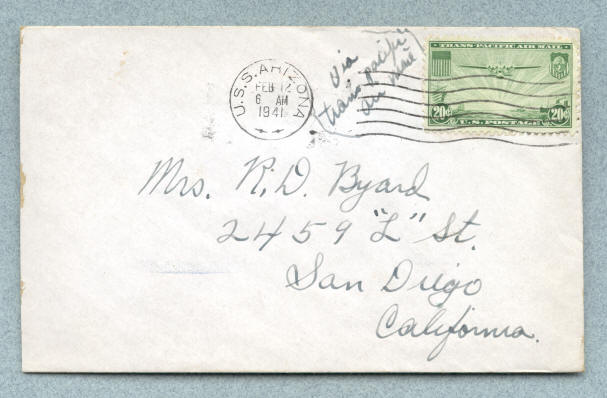 U.S.S. ARIZONA
FEB 12
6 AM
1941
Via
trans pacific
air mail
TRANS-PACIFIC AIR MAIL
20¢ 20¢
U.S. POSTAGE
Mrs. R. D. Byard
2459 "L" St.
San Diego
California.